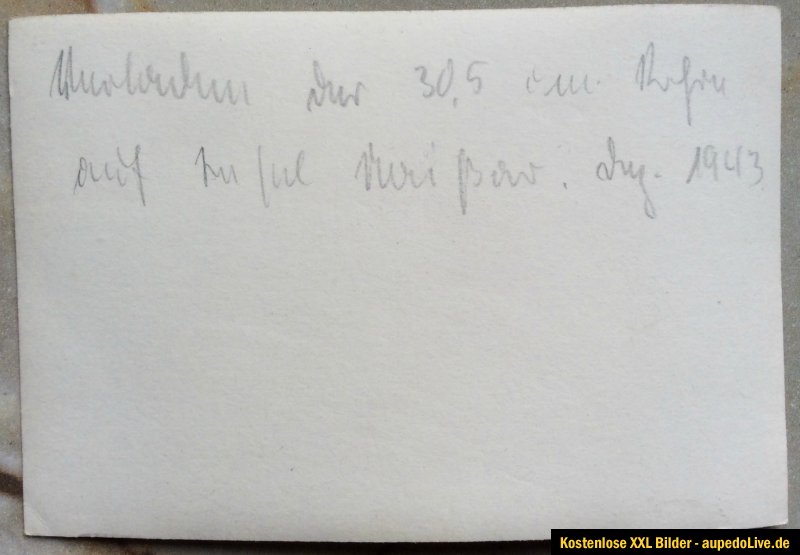 Verladen der 30,5 cm. Rohre
auf Insel Naißar. Dez. 1943
Kostenlose XXL Bilder - aupedoLive.de